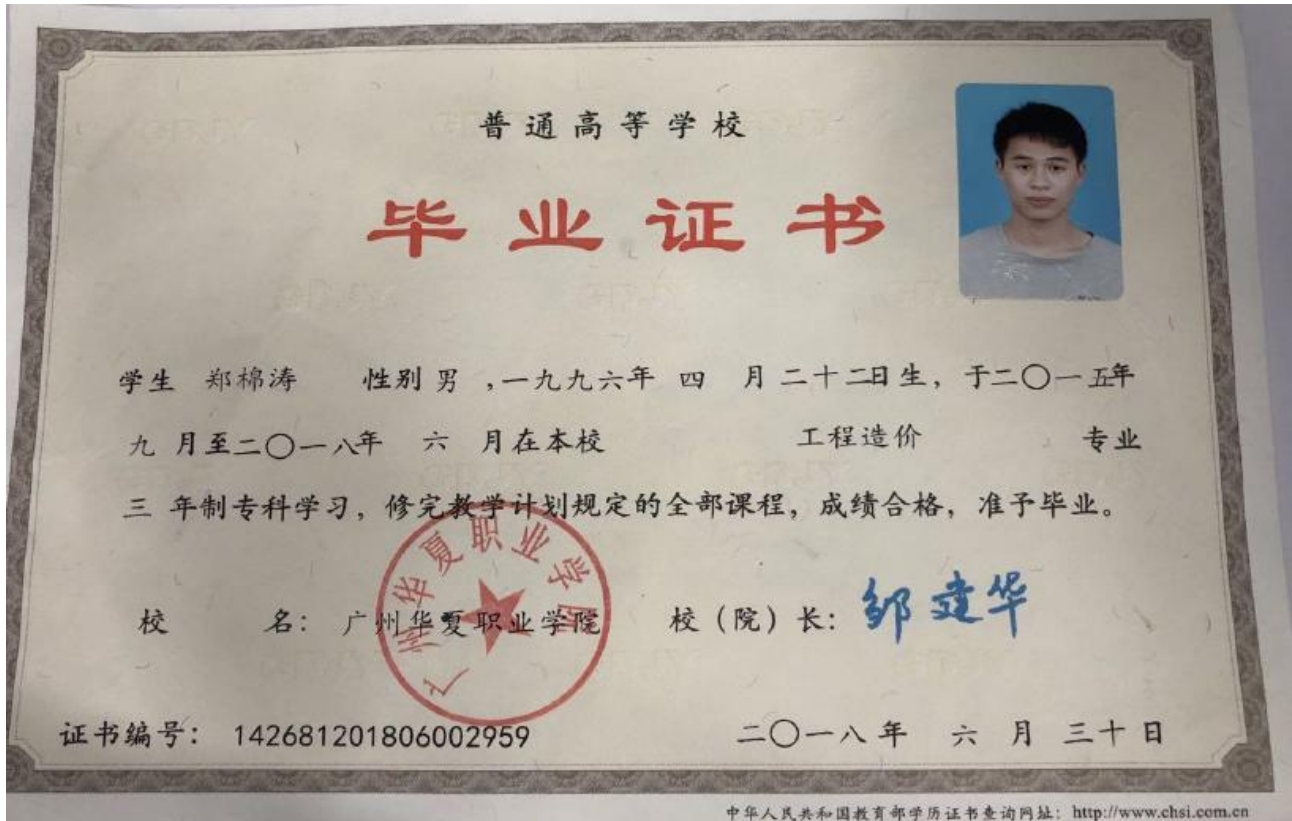 普通高等学校
毕业证书
学生 郑棉涛 性别 男 ,一九九六年 四 月二十二日生, 于二〇一五年
九 月至二〇一八年 六 月在本校 工程造价 专业
三 年制专科学习, 修完教学计划规定的全部课程, 成绩合格, 准予毕业。
广州华夏职业学院
校 名: 广州华夏职业学院 校(院)长: 邹建华
证书编号: 142681201806002959 二〇一八年 六 月 三十日
中华人民共和国教育部学历证书查询网址: http://www.chsi.com.cn